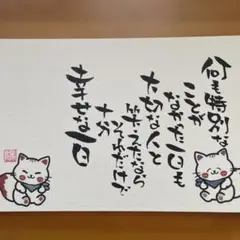 何も特別な
ことが
なかった一日も
大切な人と
笑えたなら
それだけで
十分
幸せな一日